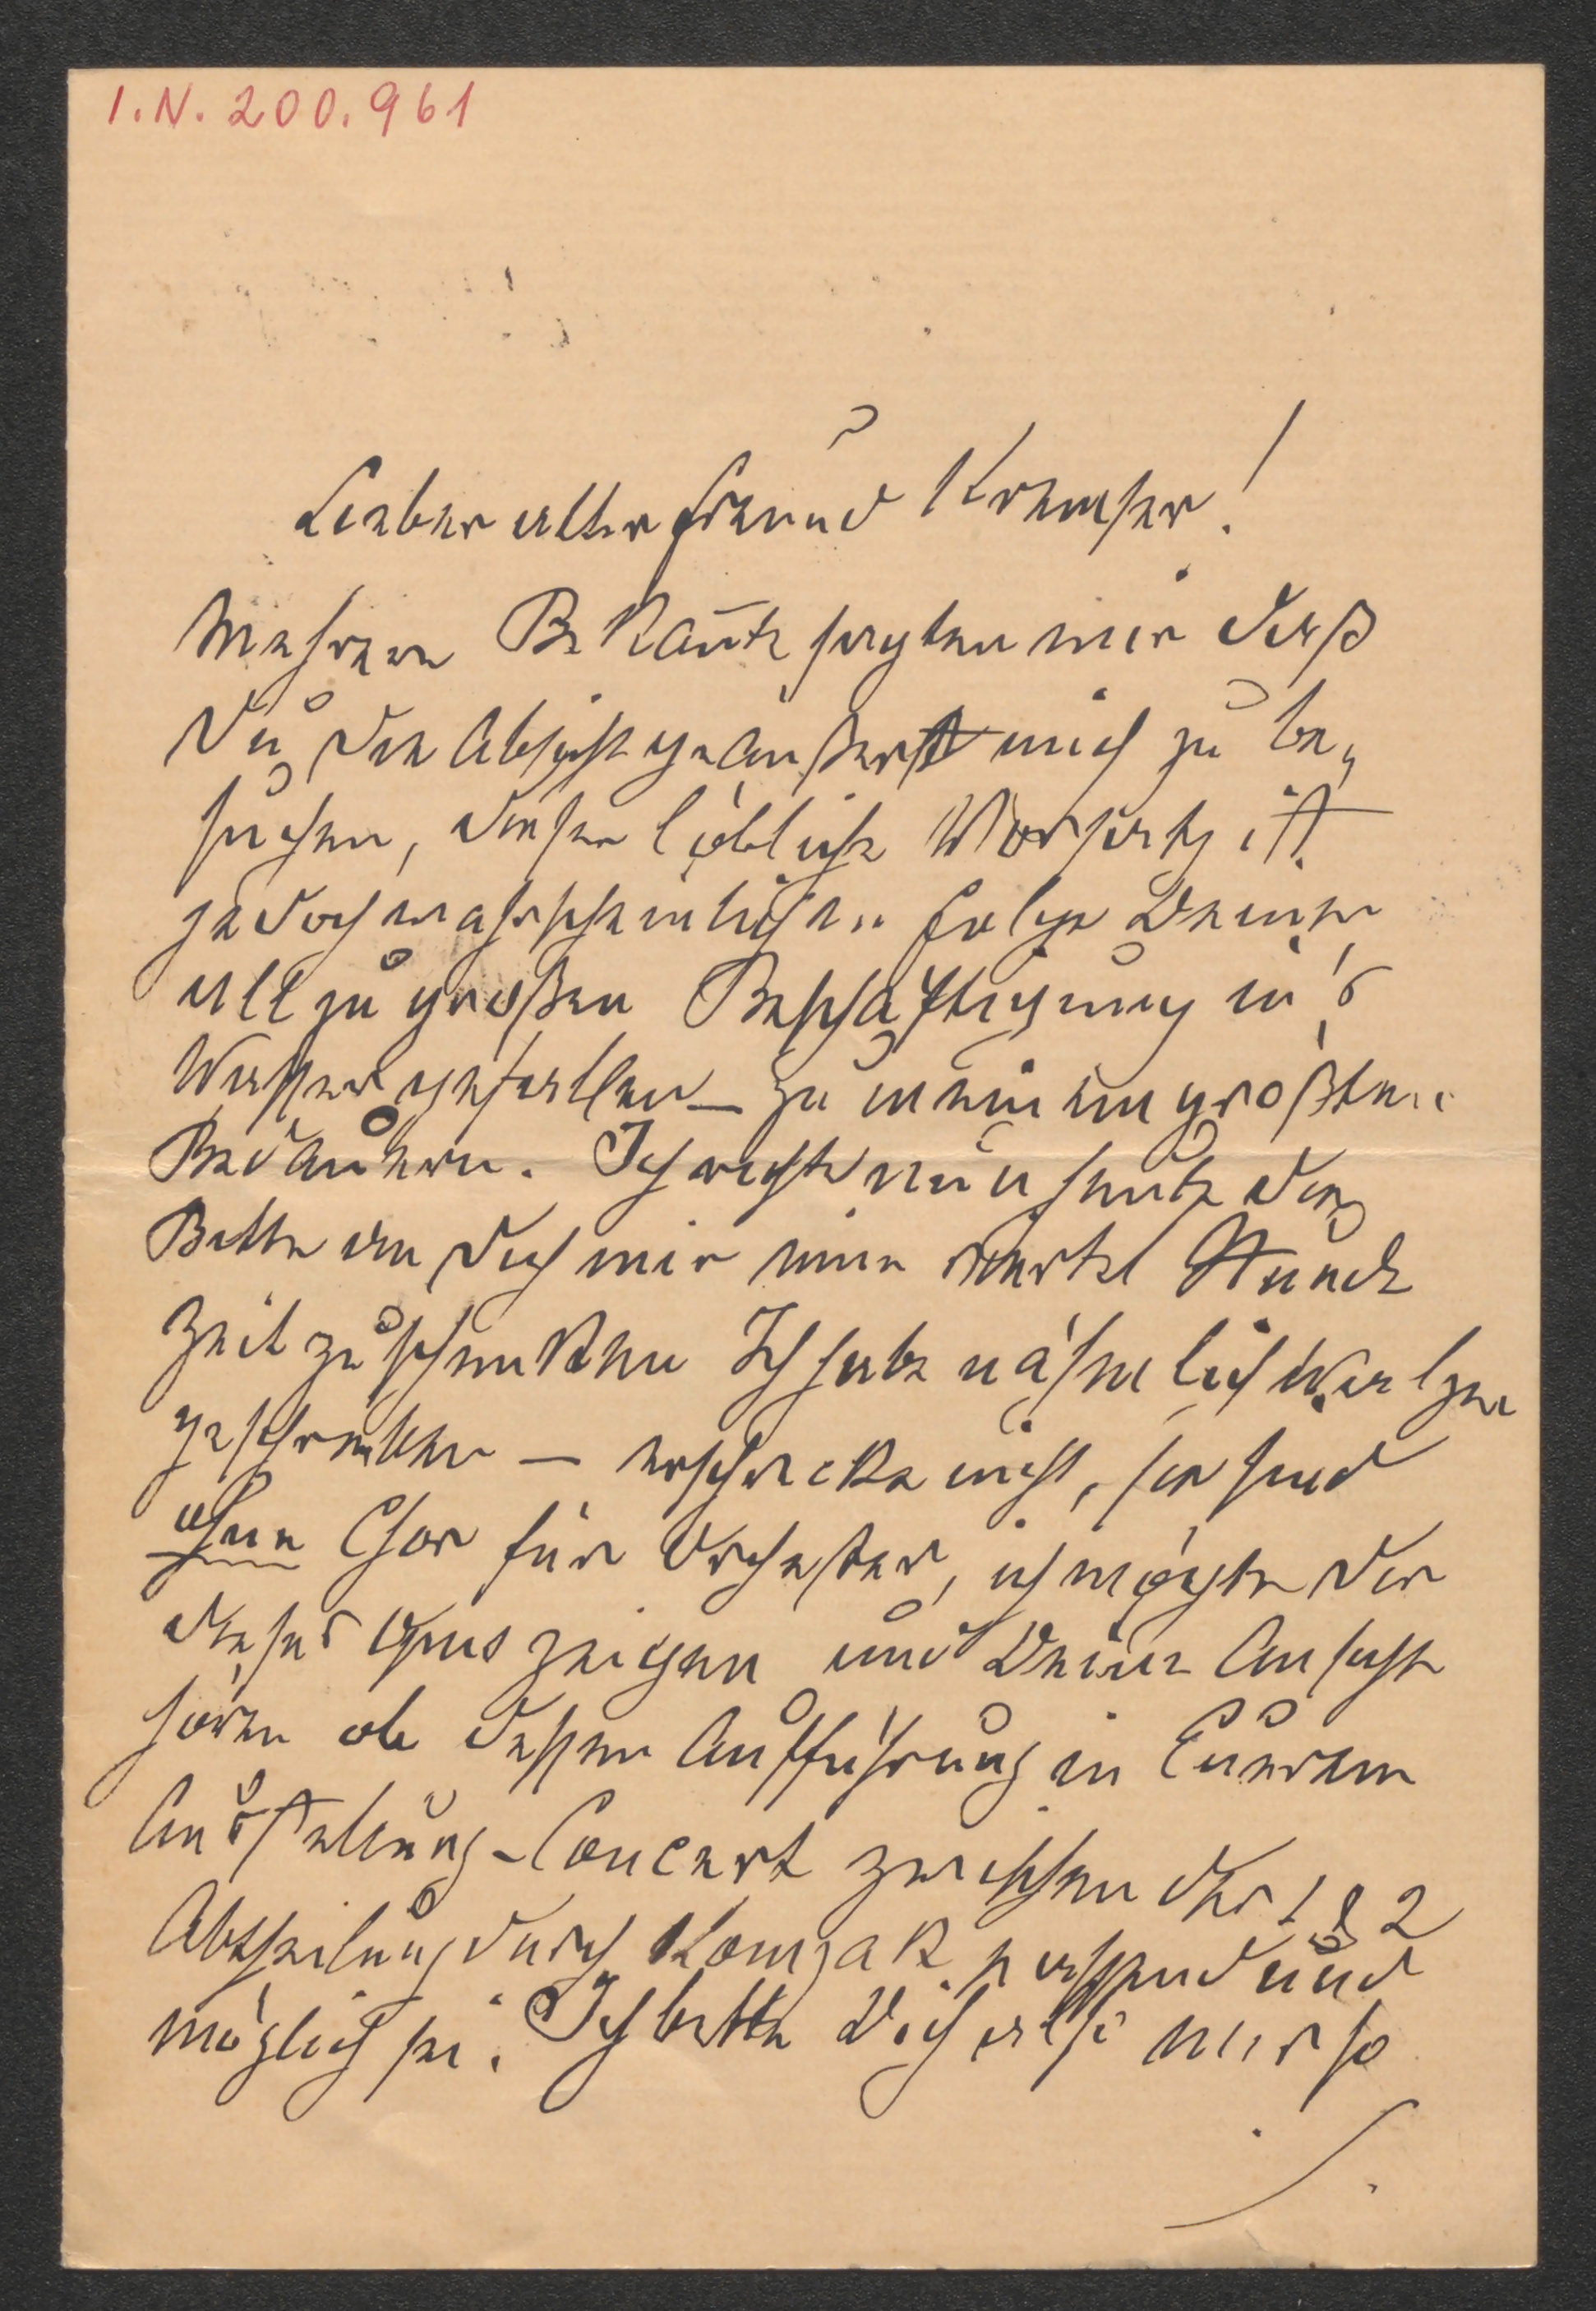 I.N. 200.961
Lieber alter Freund Kremser!
Mehrere Bekan̄te sagten mir daß
Du die Absicht geäußert mich zu be„
suchen, dieser löbliche Vorsatz ist
jedoch wahrscheinlich in Folge Deiner
allzu großen Beschäftigung in's
Wasser gefallen – zu meinem größten
Bedauern. Ich richte nun heute die
Bitte an Dich mir eine viertel Stunde
Zeit zu schenken Ich habe nähmlich Walzer
geschrieben – erschrecke nicht, sie sind
ohne Chor für Orchester, ich möchte Dir
dieses Opus zeigen und Deine Ansicht
hören ob dessen Aufführung in Eueren
Austellung-Concert zwischen der 1 & 2
Abtheilung durch Komzak passend und
möglich sei. Ich bitte Dich also mir so